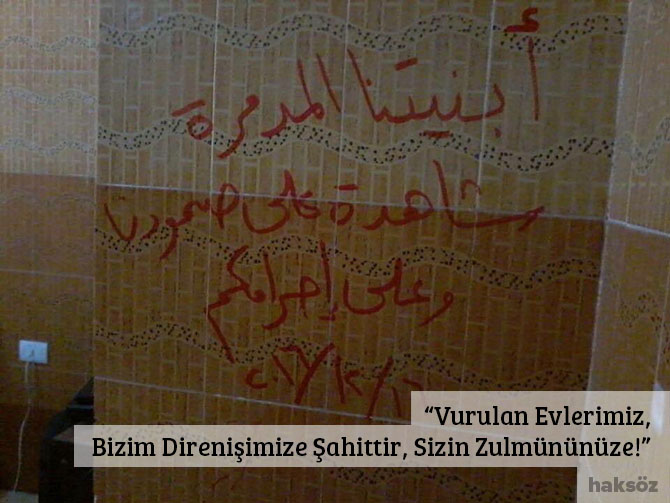 أبنيتنا المدمرة
شاهدة على صمودنا
وعلى إجرامكم
٢٠١٦/١٢/١٦
“Vurulan Evlerimiz,
Bizim Direnişimize Şahittir, Sizin Zulmününüze!”
haksöz